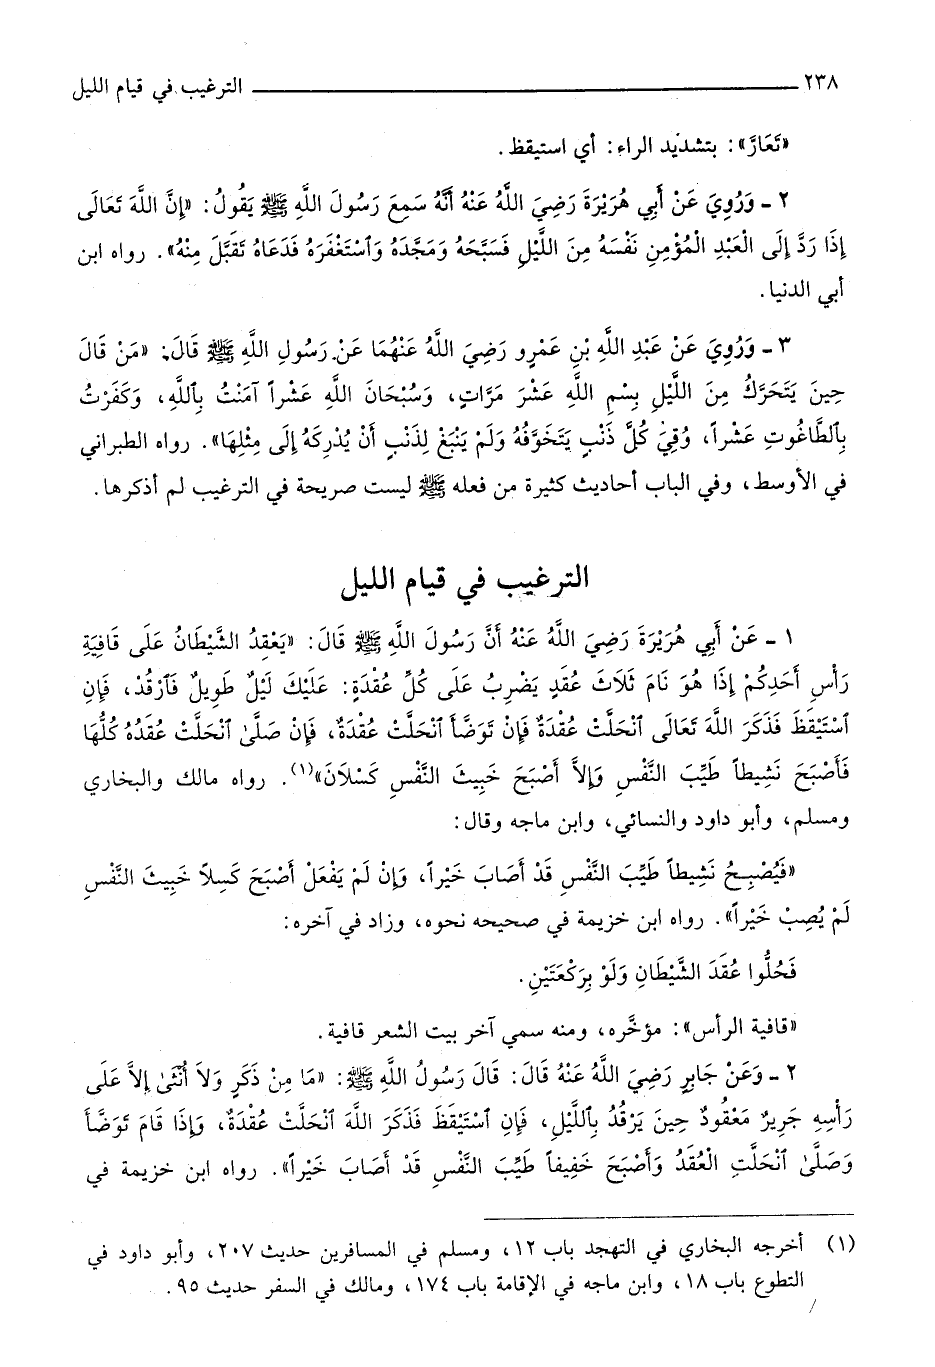 ٢٣٨ الترغيب في قيام الليل
«تَعَارَّ»: بتشديد الراء: أي استيقظ.
٢ - وَرُوِيَ عَنْ أَبِي هُرَيْرَةَ رَضِيَ اللَّهُ عَنْهُ أَنَّهُ سَمِعَ رَسُولَ اللَّهِ ﷺ يَقُولُ: «إِنَّ اللَّهَ تَعَالَى
إِذَا رَدَّ إِلَى الْعَبْدِ الْمُؤْمِنِ نَفْسَهُ مِنَ اللَّيْلِ فَسَبَّحَهُ وَمَجَّدَهُ وَٱسْتَغْفَرَهُ فَدَعَاهُ تَقَبَّلَ مِنْهُ». رواه ابن
أبي الدنيا.
٣ - وَرُوِيَ عَنْ عَبْدِ اللَّهِ بْنِ عَمْرٍو رَضِيَ اللَّهُ عَنْهُمَا عَنْ رَسُولِ اللَّهِ ﷺ قَالَ: «مَنْ قَالَ
حِينَ يَتَحَرَّكُ مِنَ اللَّيْلِ بِسْمِ اللَّهِ عَشْرَ مَرَّاتٍ، وَسُبْحَانَ اللَّهِ عَشْراً آمَنْتُ بِٱللَّهِ، وَكَفَرْتُ
بِٱلطَّاغُوتِ عَشْراً، وُقِيَ كُلَّ ذَنْبٍ يَتَخَوَّفُهُ وَلَمْ يَنْبَغِ لِذَنْبٍ أَنْ يُدْرِكَهُ إِلَى مِثْلِهَا». رواه الطبراني
في الأوسط، وفي الباب أحاديث كثيرة من فعله ﷺ ليست صريحة في الترغيب لم أذكرها.
الترغيب في قيام الليل
١ - عَنْ أَبِي هُرَيْرَةَ رَضِيَ اللَّهُ عَنْهُ أَنَّ رَسُولَ اللَّهِ ﷺ قَالَ: «يَعْقِدُ الشَّيْطَانُ عَلَى قَافِيَةِ
رَأْسِ أَحَدِكُمْ إِذَا هُوَ نَامَ ثَلَاثَ عُقَدٍ يَضْرِبُ عَلَى كُلِّ عُقْدَةٍ: عَلَيْكَ لَيْلٌ طَوِيلٌ فَٱرْقُدْ، فَإِنِ
ٱسْتَيْقَظَ فَذَكَرَ اللَّهَ تَعَالَى ٱنْحَلَّتْ عُقْدَةٌ فَإِنْ تَوَضَّأَ ٱنْحَلَّتْ عُقْدَةٌ، فَإِنْ صَلَّىٰ ٱنْحَلَّتْ عُقَدُهُ كُلُّهَا
فَأَصْبَحَ نَشِيطاً طَيِّبَ النَّفْسِ وَإِلاَّ أَصْبَحَ خَبِيثَ النَّفْسِ كَسْلَانَ»(١). رواه مالك والبخاري
ومسلم، وأبو داود والنسائي، وابن ماجه وقال:
«فَيُصْبِحُ نَشِيطاً طَيِّبَ النَّفْسِ قَدْ أَصَابَ خَيْراً، وَإِنْ لَمْ يَفْعَلْ أَصْبَحَ كَسِلاً خَبِيثَ النَّفْسِ
لَمْ يُصِبْ خَيْراً». رواه ابن خزيمة في صحيحه نحوه، وزاد في آخره:
فَحُلُّوا عُقَدَ الشَّيْطَانِ وَلَوْ بِرَكْعَتَيْنِ.
«قافية الرأس»: مؤخَّره، ومنه سمي آخر بيت الشعر قافية.
٢ - وَعَنْ جَابِرٍ رَضِيَ اللَّهُ عَنْهُ قَالَ: قَالَ رَسُولُ اللَّهِ ﷺ: «مَا مِنْ ذَكَرٍ وَلاَ أُنْثَىٰ إِلاَّ عَلَى
رَأْسِهِ جَرِيرٌ مَعْقُودٌ حِينَ يَرْقُدُ بِٱللَّيْلِ، فَإِنِ ٱسْتَيْقَظَ فَذَكَرَ اللَّهَ ٱنْحَلَّتْ عُقْدَةٌ، وَإِذَا قَامَ تَوَضَّأَ
وَصَلَّىٰ ٱنْحَلَّتِ الْعُقَدُ وَأَصْبَحَ خَفِيفاً طَيِّبَ النَّفْسِ قَدْ أَصَابَ خَيْراً». رواه ابن خزيمة في
(١) أخرجه البخاري في التهجد باب ١٢، ومسلم في المسافرين حديث ٢٠٧، وأبو داود في
التطوع باب ١٨، وابن ماجه في الإقامة باب ١٧٤، ومالك في السفر حديث ٩٥.